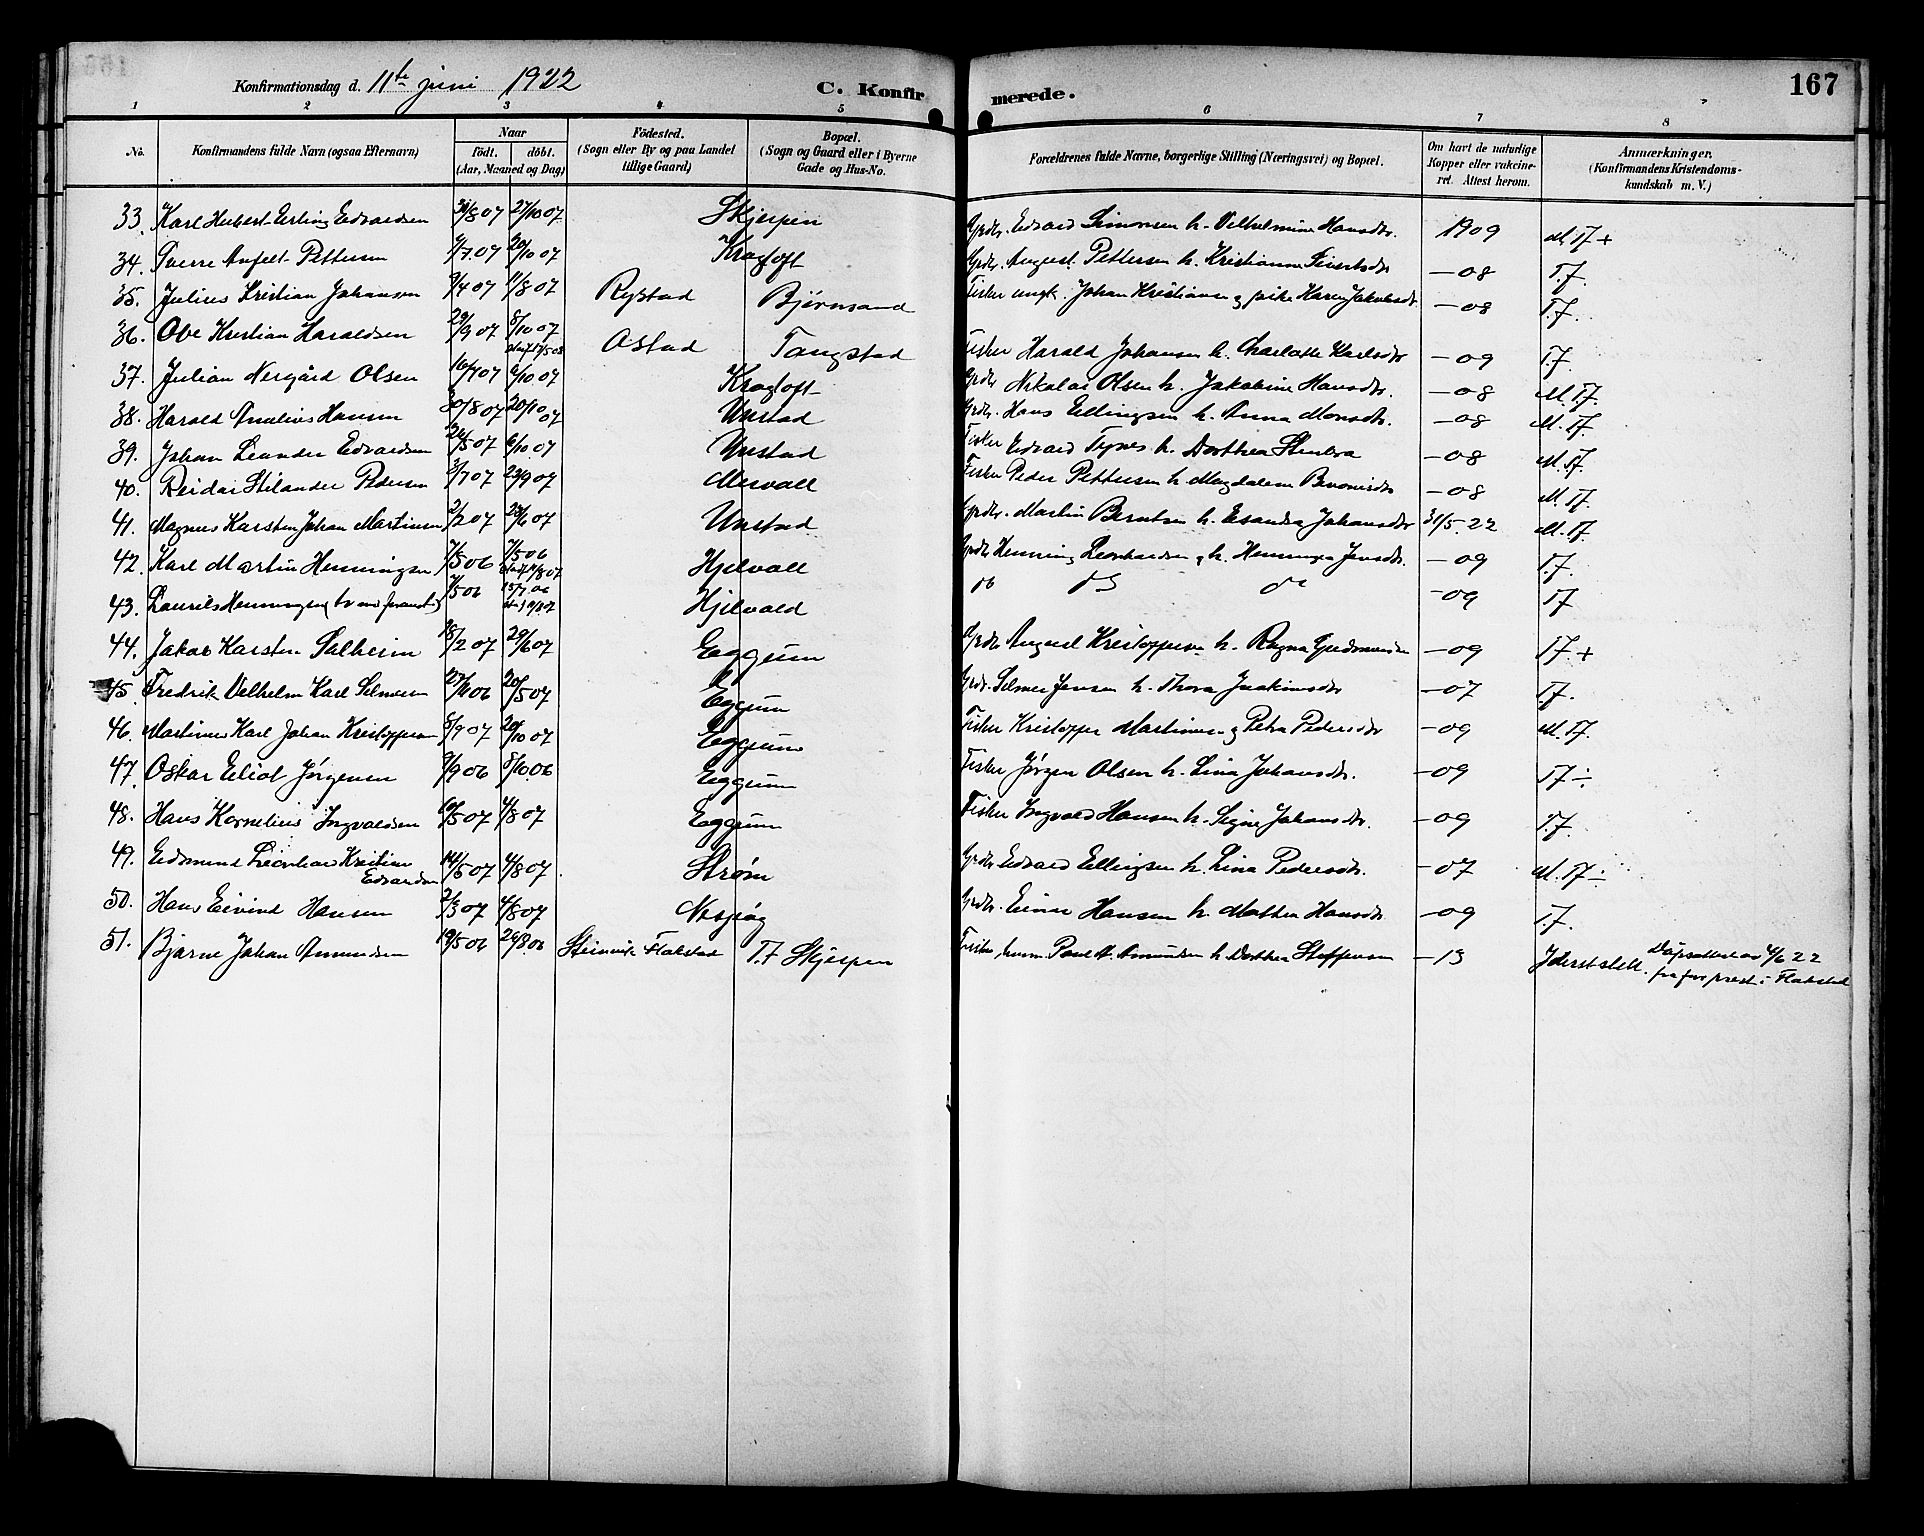 Konfirmationsdag d. 11te juni 1922 C. Konfirmerede. 167
1 2 3 4 5 6 7 8
No. Konfirmandens fulde Navn (ogsaa Efternavn) Naar født. døbt. (Aar, Maaned og Dag) Fødested. (Sogn eller By og paa Landet tillige Gaard) Bopæl. (Sogn og Gaard eller i Byerne Gade og Hus-No. Forældrenes fulde Navne, borgerlige Stilling (Næringsvei) og Bopæl. Om havt de naturlige Kopper eller vakcineret. Attest herom. Anmærkninger. (Konfirmandens Kristendomskundskab m. V.)
33. Karl Hubert Erling Edvardsen 31/8 07 27/10 07 Skjerpen Grdr. Edvard Simonsen h. Vilhelmine Hansdtr. 1909 M. T.f. +
34. Sverre Anfelt Pettersen 2/7.07 20/10 07 Kragtoft Grdr. August Pettersen h. Kristianna - 08 T.f.
35. Julius Kristian Johansen 9/4 07 11/8 07 Rystad Bjørnsand Fisker ungk. Johan Kristiansen og pike Karen Jakobsdt. - 08 T.f.
36. Ove Kristian Haraldsen 29/9 07 8/10 07 Ostad Tangstad Fisker Harald Johansen h. Charlotte Karlsdtr - 09 T.f.
37. Julian Nergård Olsen 16/7 07 6/10 07 Kragtoft Grdr Nikolai Olsen h. Jakobine Hansdtr. - 08 M. T.f.
38. Harald Amelius Hansen 30/8 07 20/10 07 Unstad Grdr. Hans Ellingsen h. Anna Monsdtr. - 08 M. T.f.
39. Johan Leander Edvardsen 26/5 07 6/10 07 Unstad Fisker Edvard h. Dorthea - 08 M. T.f.
40. Reidar Stilander Pedersen 3/7 07 29/9 07 Mervoll Fisker Peder Pettersen h. Magdalena - 08 M. T.f.
41. Magnus Karsten Johan Martinsen 2/2 07 23/6 07 Unstad Grdr. Martin Berntsen h. Johansdtr 31/5.22 M. T.f.
42. Karl Martin Henningsen 7/5 06 7/5 06 Hjelvoll Grdr. Henning Leonhardsen og h. Jensdtr. - 09 T.f.
43. Laurits Henningsen 7/5 06 Hjelvold do do do - 09 T.f.
44. Jakob Karsten Solheim 18/2 07 29/6 07 Eggum Grdr August Kristoffersen h. Ragna - 09 T.f. +
45. Fredrik Vilhelm Karl Selmersen 27/6 06 20/5 07 Eggum Grdr. Selmer Jensen h. Thora Joakimsdtr - 07 T.f.
46. Martinus Karl Johan Kristoffersen 8/9 07 20/10 07 Eggum Fisker Kristoffer Martinussen og Petra Pedersdtr - 09 M. T.f.
47. Oskar Eliot Jørgensen 9/9 06 8/10.06 Eggum Fisker Jørgen Olsen h. Lina Johansdtr. - 09 T.f. ÷
48. Hans Kornelius Ingvaldsen 10/5 07 4/8 07 Eggum Fisker Ingvald Hansen h. Signe Johansdtr. - 09 T.f.
49. Edmund Leonhard Kristian Edvardsen 14/5 07 4/8 07 Strøm Grdr. Edvard Ellingsen h. Lina Pedersdtr. - 07 M. T.f. ÷
50. Hans Eivind Hansen 2/3 07 4/8 07 Grdr. Einar Hansen h. Mathea Hansdtr - 09 T.f.
51. Bjarne Johan Amundsen 19/5 06 26/8.06 Steinvik Flakstad T.f Skjerpen Fisker Amundsen h. Dorthea Steffensen - 13 Iderst slett. Dåpsattest av 4/6 22
fra sogneprest i Flakstad